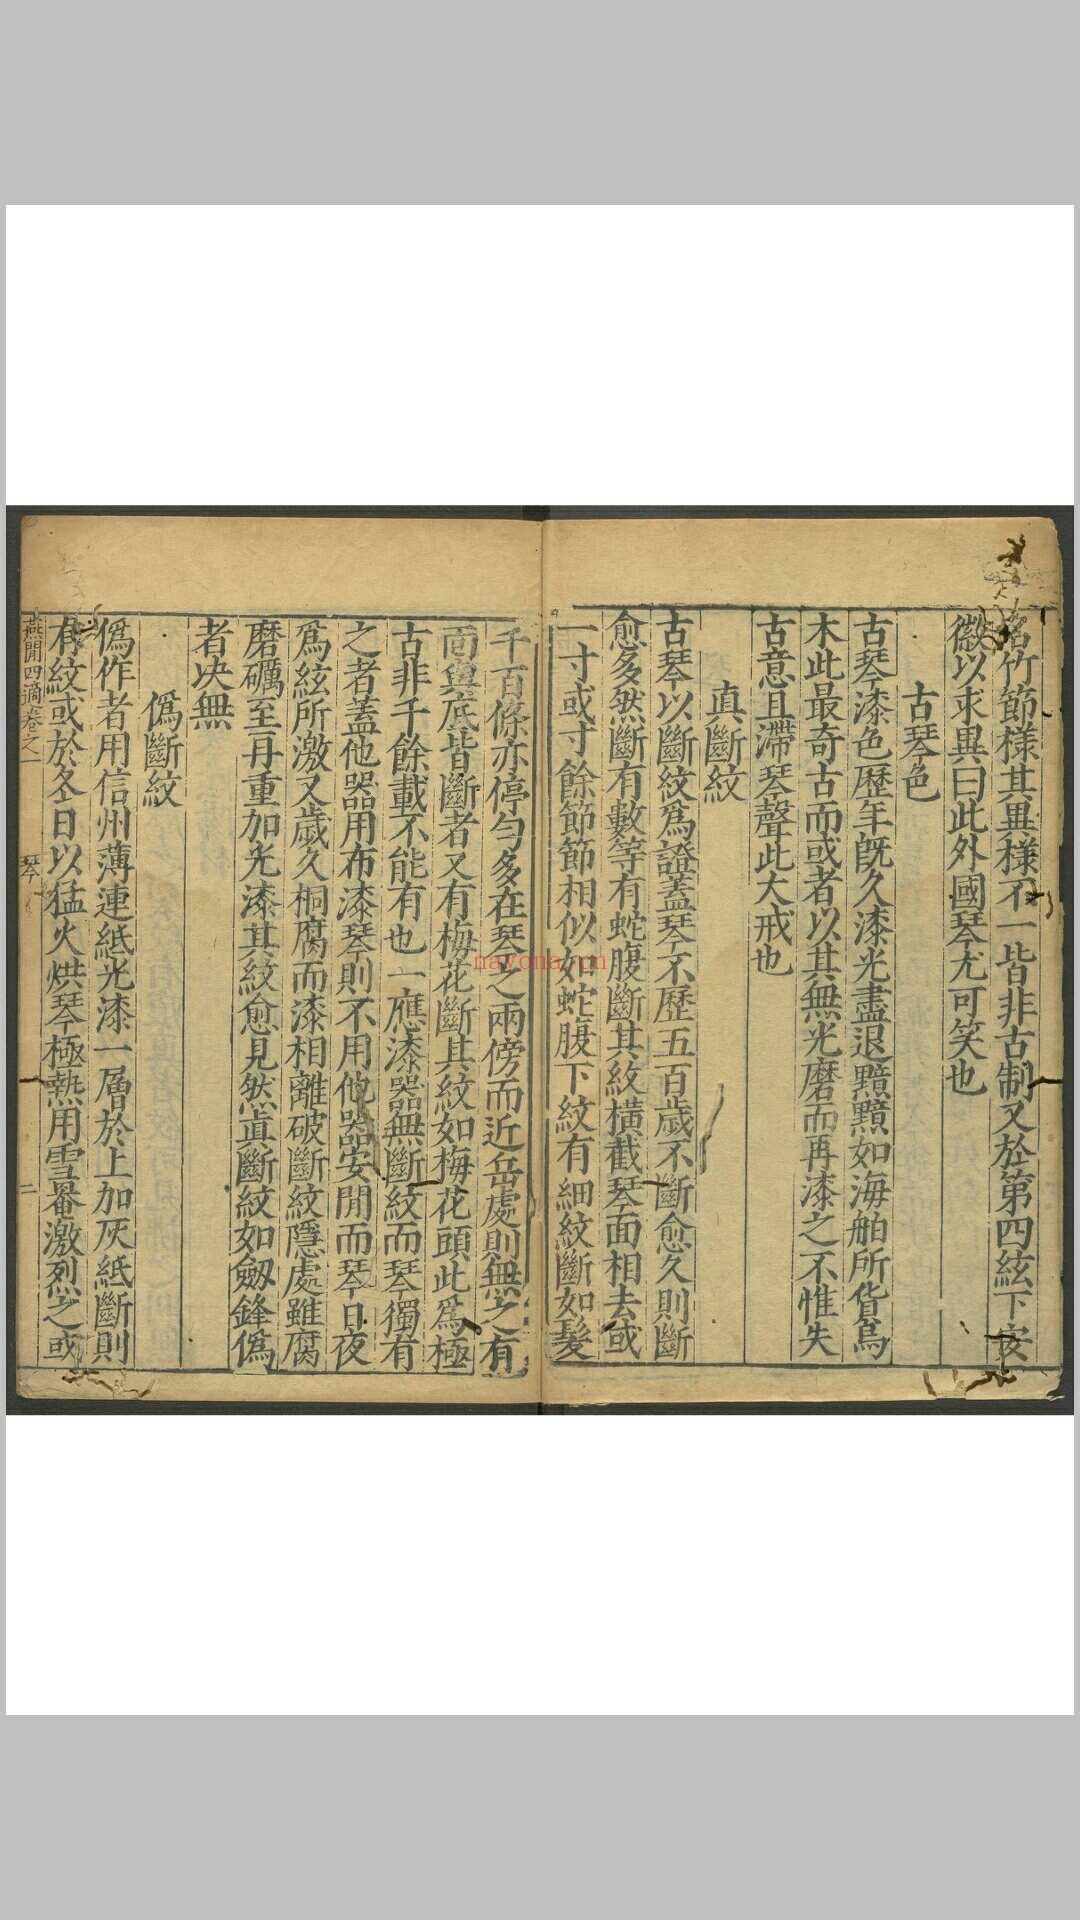 名竹節様其異様不一皆非古制又於第四絃下安
徽以求異曰此外國琴尤可笑也
古琴色
古琴漆色歷年旣久漆光盡退黯黯如海舶所貨烏
木此最奇古而或者以其無光磨而再漆之不惟失
古意且滯琴聲此大戒也
真斷紋
古琴以斷紋爲證蓋琴不歷五百歲不斷愈久則斷
愈多然斷有數等有蛇腹斷其紋橫截琴面相去或
一寸或寸餘節節相似如蛇腹下紋有細紋斷如髮
千百條亦停勻多在琴之兩傍而近岳處則無之有
面與底皆斷者又有梅花斷其紋如梅花頭此爲極
古非千餘載不能有也一應漆器無斷紋而琴獨有
之者蓋他器用布漆琴則不用他器安閒而琴日夜
爲絃所激又歲久桐腐而漆相離破斷紋隱處雖腐
磨礪至再重加光漆其紋愈見然真斷紋如劔鋒僞
者决無
僞斷紋
僞作者用信州薄連紙光漆一層於上加灰紙斷則
有紋或於冬日以猛火烘琴極熱用雪罨激烈之或
燕閒四適卷之一
琴
二
nayona.cn